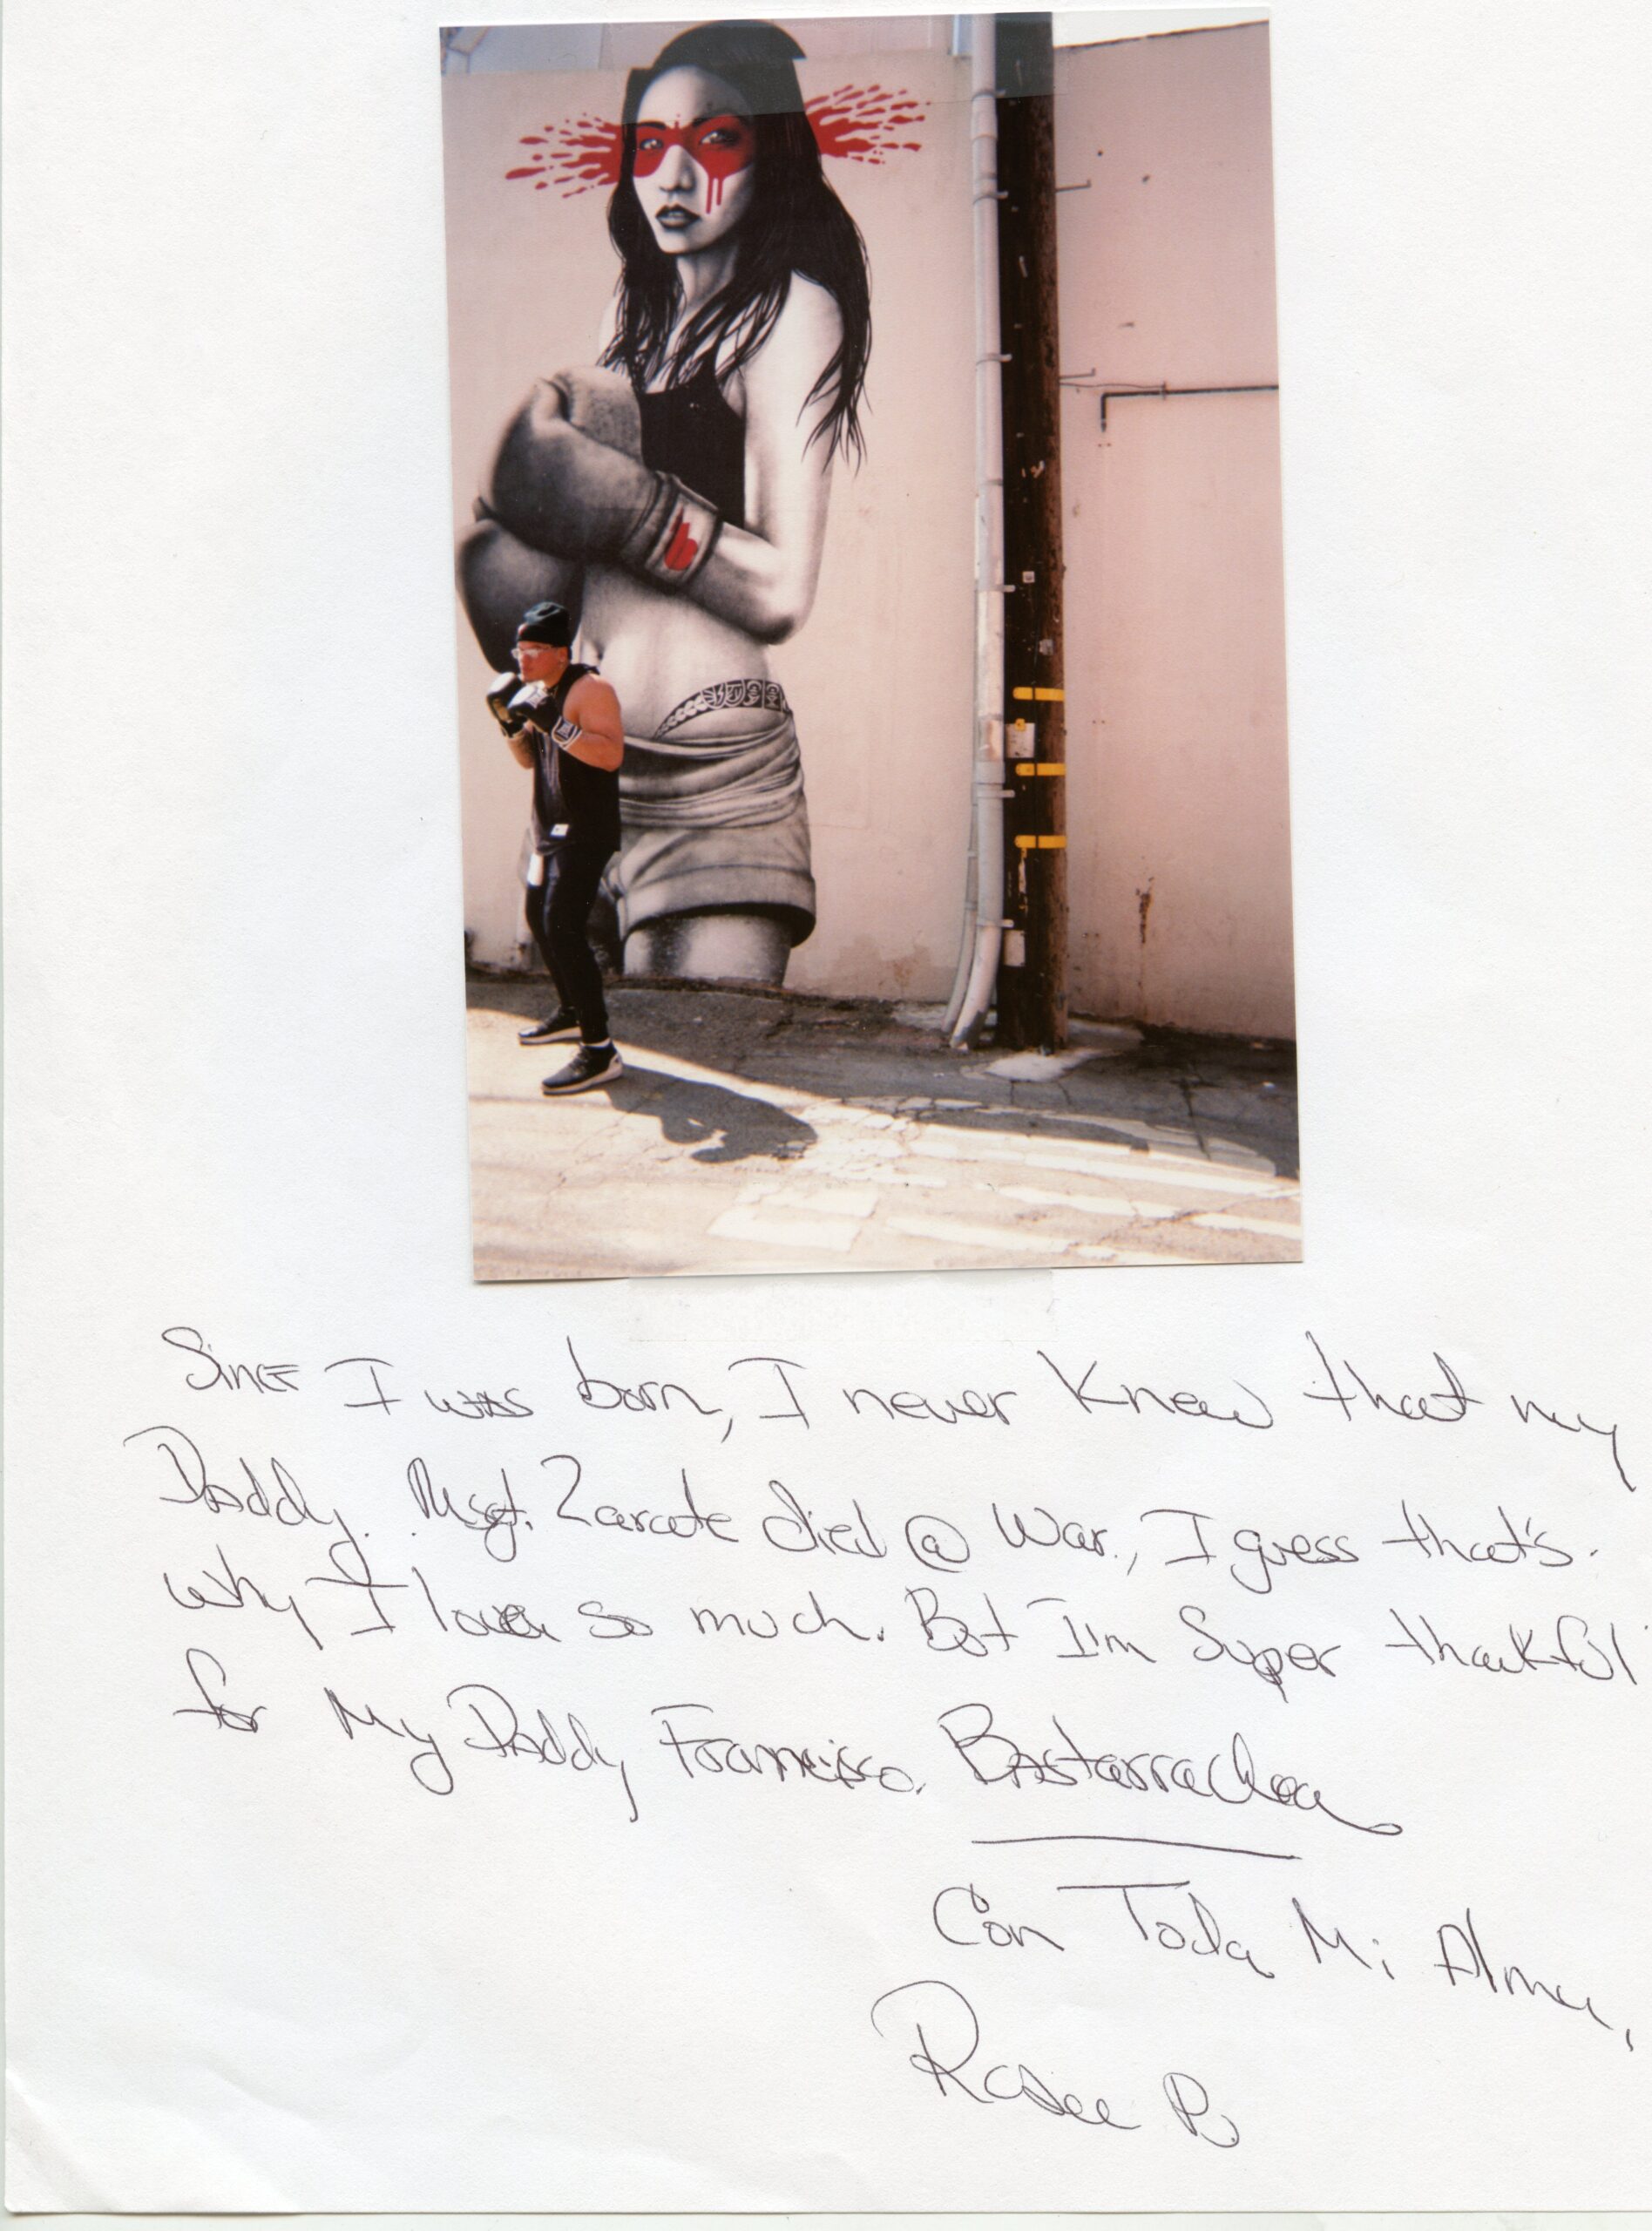 Since I was born, I never knew that my
Daddy. Msgt. Zarate died @ War., I guess that's.
why I love so much. But I'm Super thankful
for My Daddy Francisco. Bastarrachea
Con Toda Mi Alma,
B.